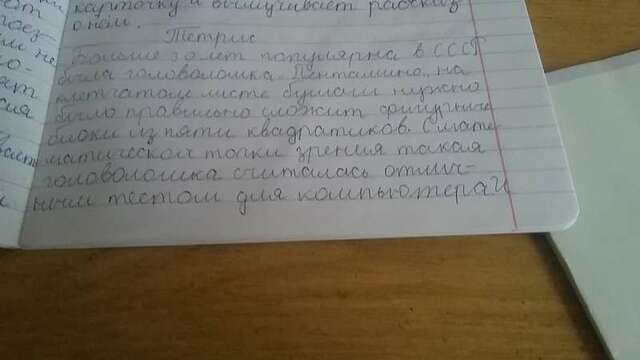 карточку и вытягивает рассказ
о нём.
Тетрис
Больше 30 лет популярна в СССР
была головоломка Пентамино, на
клетчатом листе бумаги нужно
было правильно уложит фигурние
блоки из пяти квадратиков. С мате
матической точки зрения такая
головоломка считалась отлич-
ным тестом для компьютерай